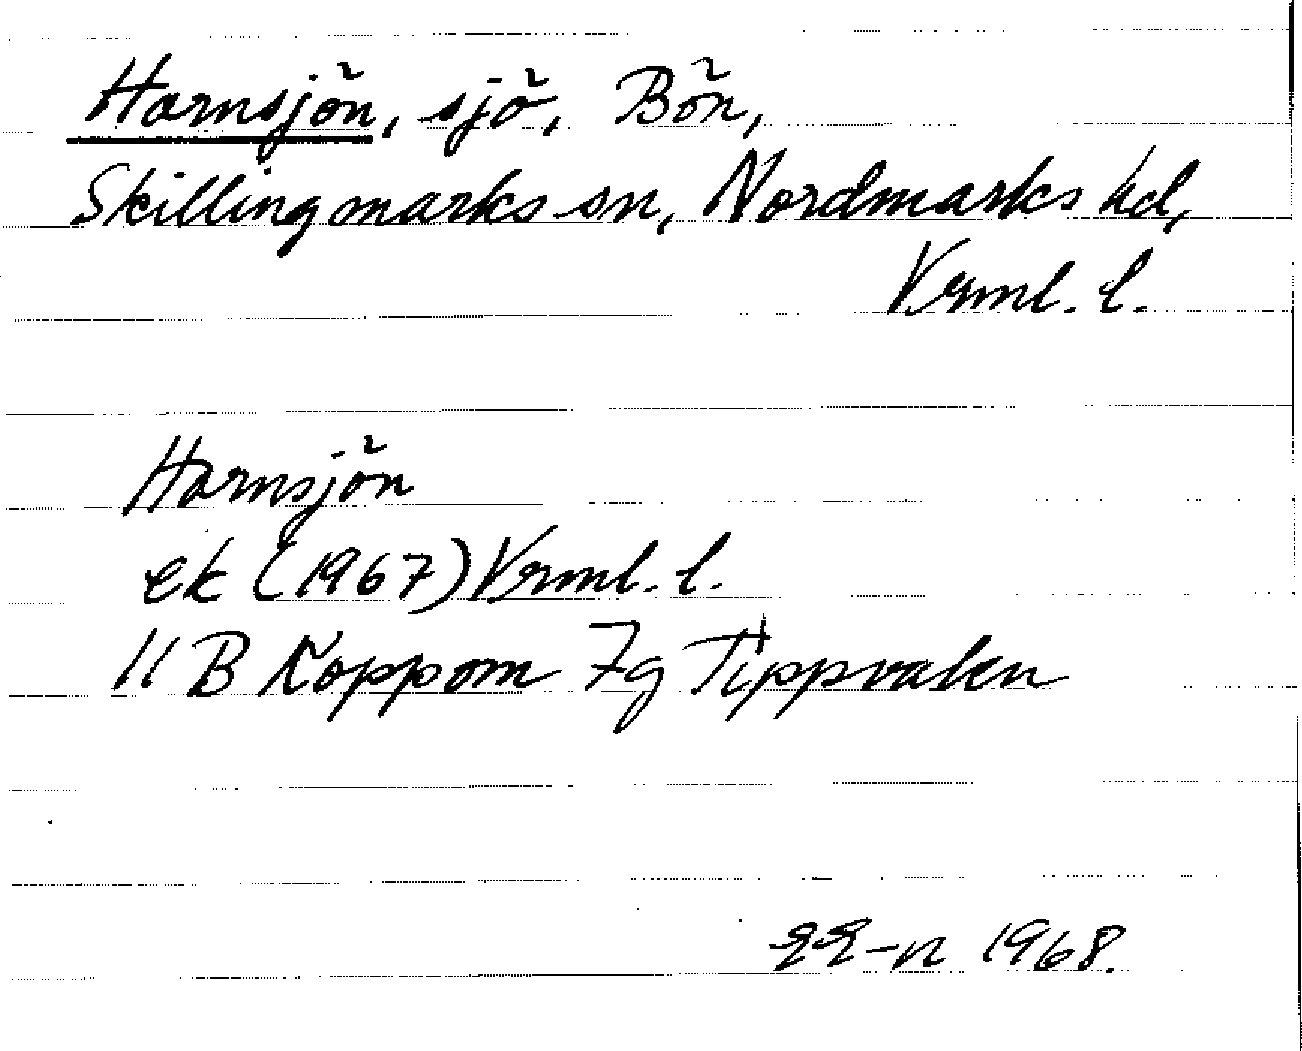 Harnsjön, sjö, Bön,
Skillingmarks sn, Nordmarks hd,
Vrml. l.
Harnsjön
ek (1967) Vrml. l.
11 B Koppom 7g Tippvaken
1968.